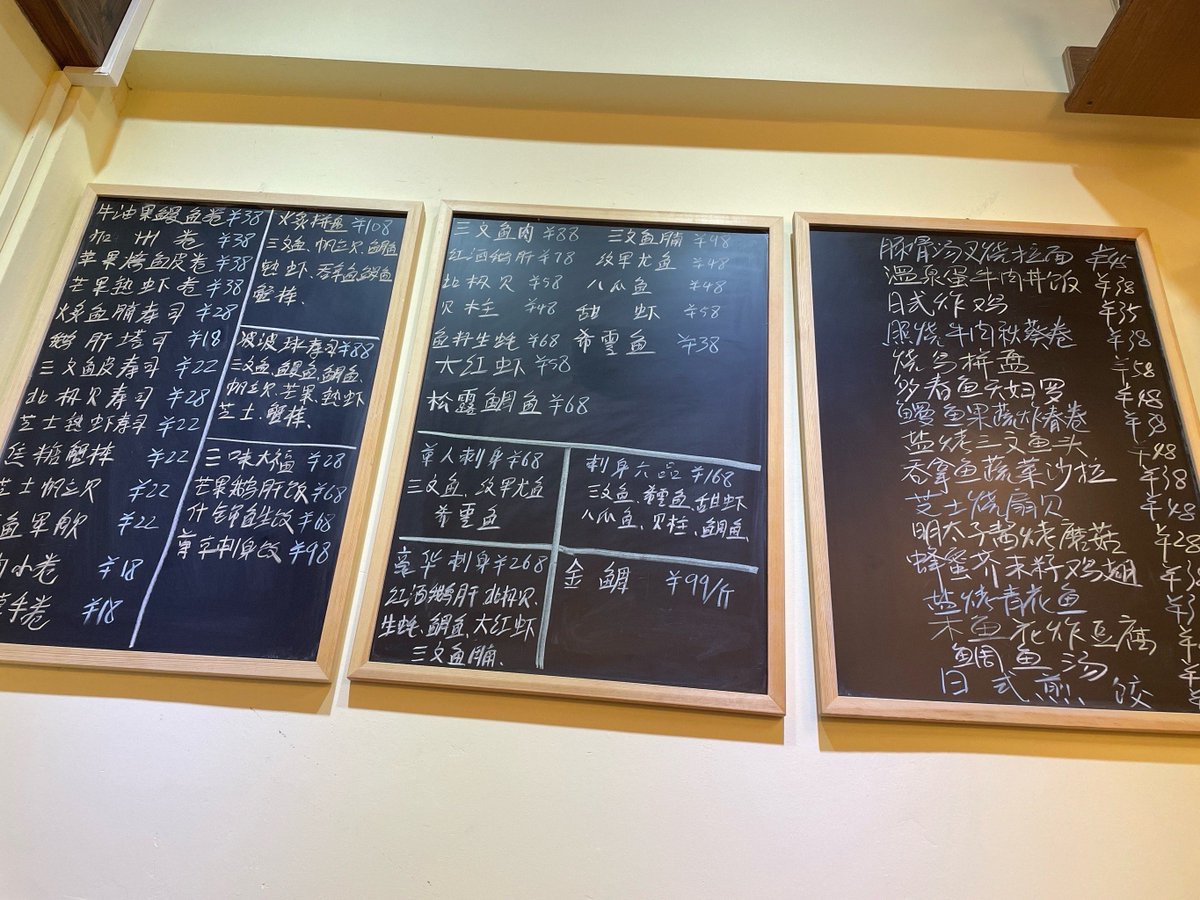 牛油果鳗鱼卷 ¥38
加州卷 ¥38
苹果烤鱼皮卷 ¥38
芒果热虾卷 ¥38
炙鱼腩寿司 ¥28
鹅肝塔可 ¥18
三文鱼皮寿司 ¥22
北极贝寿司 ¥28
芝士热虾寿司 ¥22
焦糖蟹棒 ¥22
芝士帆立贝 ¥22
鱼军舰 ¥22
小卷 ¥18
手卷 ¥18
火炙拼盘 ¥108
三文鱼、帆立贝、鲷鱼
热虾、吞拿鱼、鳗鱼
蟹棒、
波波球寿司 ¥88
三文鱼、鳗鱼、鲷鱼、
帆立贝、芒果、热虾
芝士、蟹棒、
三味大福 ¥28
芒果鹅肝饭 ¥68
什锦鱼生饭 ¥68
豪华刺身饭 ¥98
三文鱼肉 ¥88 三文鱼腩 ¥98
红酒鹅肝 ¥78 纹甲尤鱼 ¥48
北极贝 ¥58 八爪鱼 ¥48
贝柱 ¥48 甜虾 ¥58
鱼籽生蚝 ¥68 希霊鱼 ¥38
大红虾 ¥58
松露鲷鱼 ¥68
单人刺身 ¥68
三文鱼、纹甲尤鱼
希霊鱼
刺身六品 ¥168
三文鱼、希霊鱼、甜虾
八爪鱼、贝柱、鲷鱼、
豪华刺身 ¥268
红酒鹅肝、北极贝、
生蚝、鲷鱼、大红虾
三文鱼腩、
金鲷 ¥99/斤
豚骨汤叉烧拉面 ¥45
温泉蛋牛肉丼饭 ¥38
日式炸鸡 ¥35
照烧牛肉秋葵卷 ¥38
烧鸟拼盘 ¥58
多春鱼天妇罗 ¥48
鳗鱼果蔬炸春卷 ¥58
盐烤三文鱼头 ¥48
吞拿鱼蔬菜沙拉 ¥38
芝士烧扇贝 ¥48
明太子酱烤蘑菇 ¥28
蜂蜜芥末籽鸡翅 ¥38
盐烤青花鱼
木鱼花炸豆腐
鲷鱼汤
日式煎饺